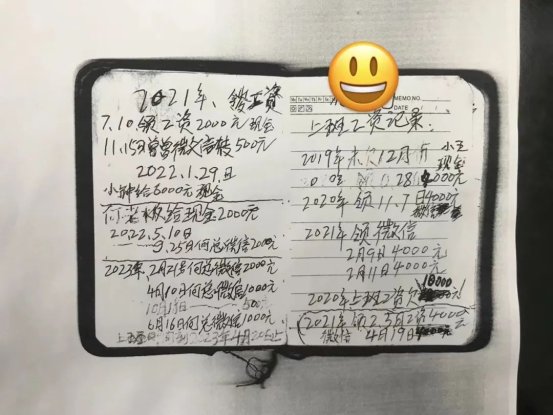 2021年、领工资
7.10.领工资2000元现金
11.15日曾曾微信转500元
2022.1.29.日
小钟给6000元现金
何老板给现金2000元
2022.5.10日
9.25日何总微信2000元
2023年.2月21号何总微信2000元
4月10日何总微信1000元
10月1日 500
6月16日何总微信1000元
2023年4月20日止
MEMO NO.
DATE
上班工资记录:
2019年 12月 小王
现金
28 4000元
2020年领11.7日4000元
微信
2021年领微信
2月9日4000元
2月11日4000元
10000
2020年上班工资
2021年领2.5月工资4000元
微信 4月19日